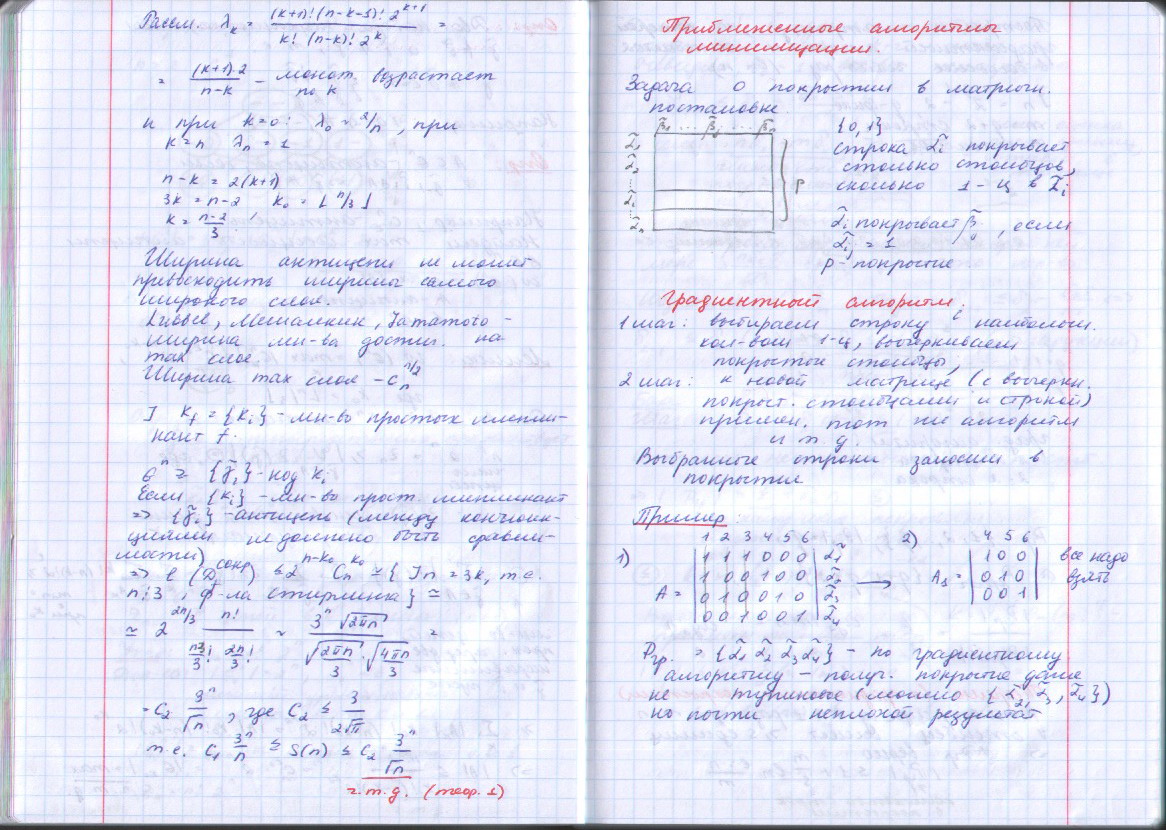 Рассм. λk = (k+n)! (n-k-3)! 2^{k+1} / k! (n-k)! 2^k =
= (k+1)·2 / n-k – монот. возрастает
по k
и при k=0: λ0 = 2/n, при
k=n λn = 1
n-k = 2(k+1)
3k = n-2 k0 = ⌊n/3⌋
k = n-2 / 3
Ширина антицепи не может
превосходить ширины самого
широкого слоя.
Lubbel, Мешалкин, Jamamoto –
ширина мн-ва достиг. на
max слое.
Ширина max слоя – C_n^{n/2}
] K_f = {K_i} – мн-во простых импли-
кант f.
G^n ⊇ {γ̃_i} – код K_i
Если {K_i} – мн-во прост. импликант
=> {γ̃_i} – антицепь (между конъюнк-
циями не должно быть сравни-
мости)
=> ℓ(D_f^{сокр}) ≤ 2^{n-k0} C_n^{k0} ≅ { ] n = 3k, т.е.
n⋮3, ф-ла Стирлинга } ≅
≅ 2^{2n/3} n! / n/3! 2n/3! ~ 3^n √2πn / √2πn/3 · √4πn/3 =
= C2 3^n/√n, где C2 ≤ 3 / 2√π
т.е. C1 3^n/n ≤ S(n) ≤ C2 3^n/√n
ч.т.д. (теор. 1)
Приближенные алгоритмы
минимизации.
Задача о покрытии в матричн.
постановке.
β̃1 ... β̃j ... β̃n {0, 1}
α̃1 строка α̃i покрывает
α̃2 столько столбцов,
α̃i P сколько 1-ц в α̃i
α̃n α̃i покрывает β̃j, если
α̃ij = 1
P – покрытие
Градиентный алгоритм.
1 шаг: выбираем строку с наибольш.
кол-вом 1-ц, вычеркиваем
покрытые столбцы,
2 шаг: к новой матрице (с вычеркн.
покрыт. столбцами и строкой)
примен. тот же алгоритм
и т д.
Выбранные строки заносим в
покрытие
Пример:
1 2 3 4 5 6 2) 4 5 6
1) 1 1 1 0 0 0 α̃1 1 0 0 все надо
1 0 0 1 0 0 α̃2 → A1 = 0 1 0 взять
A = 0 1 0 0 1 0 α̃3 0 0 1
0 0 1 0 0 1 α̃4
Pгр. = {α̃1 α̃2 α̃3 α̃4} – по градиентному
алгоритму – получ. покрытие даже
не тупиковое (можно {α̃2, α̃3, α̃4})
но почти неплохой результат